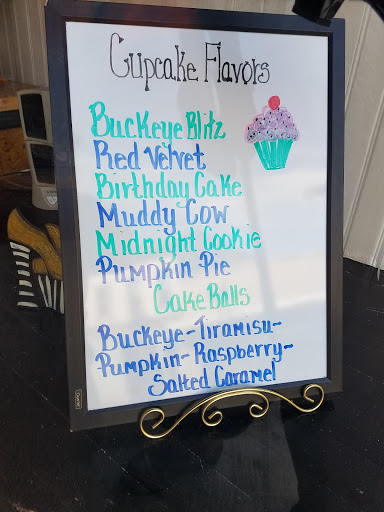 Cupcake Flavors
Buckeye Blitz
Red Velvet
Birthday Cake
Muddy Cow
Midnight Cookie
Pumpkin Pie
Cake Balls
Buckeye-Tiramisu-
Pumpkin-Raspberry-
Salted Caramel